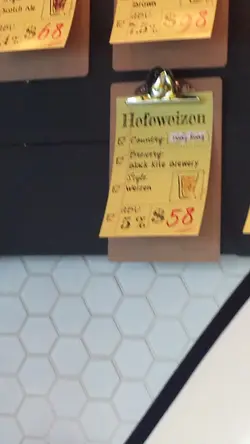 Scotch Ale
$68
ABV:
$98
Hefeweizen
Country: Hong Kong
Brewery:
Black Kite Brewery
Style
Weizen
ABV:
5% $58